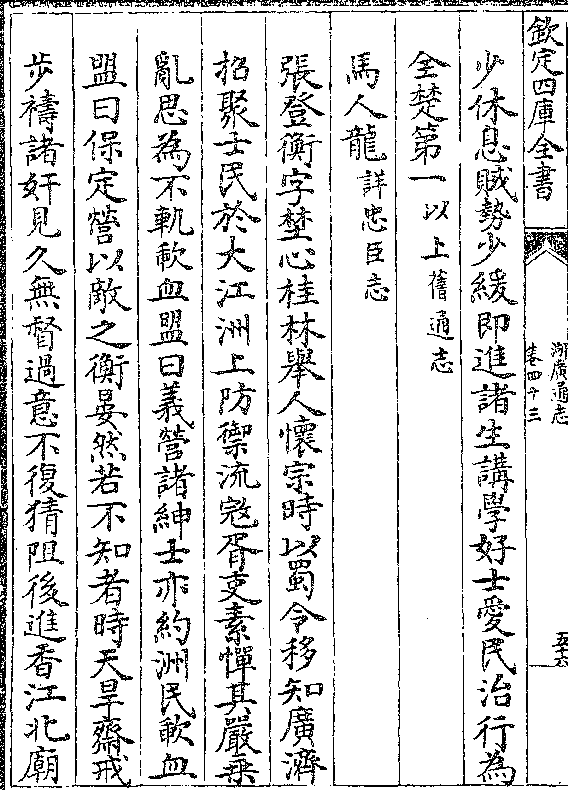 欽定四庫全書
湖廣通志
卷四十三
五十六
少休息賊勢少緩即進諸生講學好士愛民治行為
全楚第一以上舊通志
馬人龍詳忠臣志
張登衡字埜心桂林舉人懷宗時以蜀令移知廣濟
招聚士民於大江洲上防禦流宼胥吏素憚其嚴乗
亂思為不軌歃血盟曰義營諸紳士亦約洲民歃血
盟曰保定營以敵之衡晏然若不知者時天旱齋戒
步禱諸奸見久無督過意不復猜阻後進香江北廟